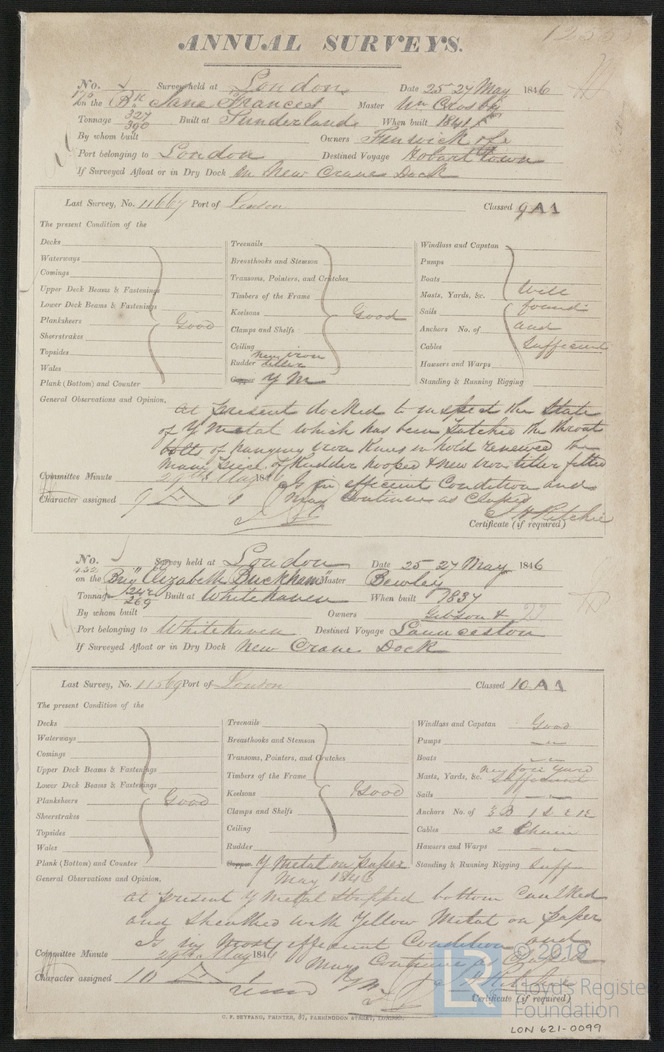 ANNUAL SURVEYS.
No. Survey held at London Date 25-27 May 1846
on the Bk Jane Frances Master Wm Crosby
Tonnage 327 390 Built at Sunderland When built 1841
By whom built Owners Fenwick
Port belonging to London Destined Voyage Hobart town
If Surveyed Afloat or in Dry Dock in New Crane Dock
Last Survey, No. 11667 Port of London Classed 9 A 1
The present Condition of the
Decks
Waterways
Comings
Upper Deck Beams & Fastenings
Lower Deck Beams & Fastenings
Planksheers Good
Sheerstrakes
Topsides
Wales
Plank (Bottom) and Counter
Treenails
Breasthooks and Stemson
Transoms, Pointers, and Crutches
Timbers of the Frame
Keelsons Good
Clamps and Shelfs
Ceiling
Rudder New iron tiller
Copper Y M
Windlass and Capstan
Pumps
Boats Well
Masts, Yards, &c.
Sails found
Anchors No. of and
Cables Sufficient
Hawsers and Warps
Standing & Running Rigging
General Observations and Opinion,
At present docked to inspect the State
of Y Metal which has been patched the throat
bolts of hanging iron knees in hold renewed the
main piece of Rudder hooped & new iron tiller fitted
Committee Minute 29th May 1846
is in efficient Condition and
Character assigned 9 A 1 May Continue as Classed
J H Ritchie
Certificate (if required)
No. Survey held at London Date 25-27 May 1846
on the Brig "Elizabeth Buckham" Master Bewley
Tonnage 242 269 Built at Whitehaven When built 1837
By whom built Owners Gibson &
Port belonging to Whitehaven Destined Voyage Launceston
If Surveyed Afloat or in Dry Dock New Crane Dock
Last Survey, No. 11569 Port of London Classed 10 A 1
The present Condition of the
Decks
Waterways
Comings
Upper Deck Beams & Fastenings
Lower Deck Beams & Fastenings
Planksheers Good
Sheerstrakes
Topsides
Wales
Plank (Bottom) and Counter
Treenails
Breasthooks and Stemson
Transoms, Pointers, and Crutches
Timbers of the Frame
Keelsons Good
Clamps and Shelfs
Ceiling
Rudder
Copper Y Metal on paper
May 1846
Windlass and Capstan Good
Pumps
Boats
Masts, Yards, &c. New fore Yard Sufficient
Sails
Anchors No. of 3 B 1 S & 1 K
Cables 2 Chain
Hawsers and Warps
Standing & Running Rigging Suff
General Observations and Opinion,
At present Y Metal Stripped bottom Caulked
and Sheathed with Yellow Metal on paper
Is in most efficient Condition and
Committee Minute 29th May 1846 May Continue as Classed
Character assigned 10 A 1
Certificate (if required)
C. F. SEYFANG, PRINTER, 57, FARRINGDON STREET, LONDON.
© 2019
Lloyd's Register
Foundation
LR
LON 621-0099